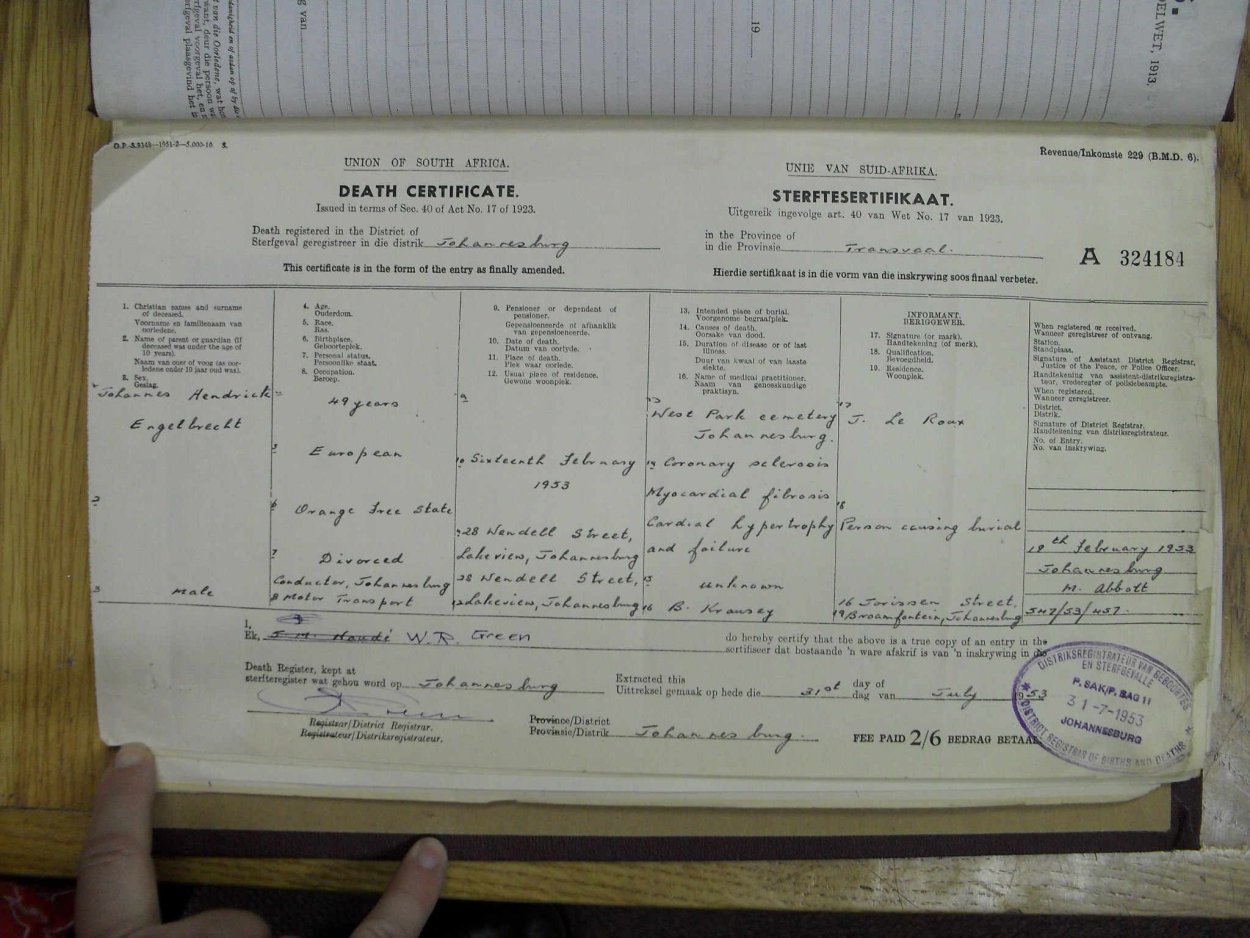 19
ELWET, 1913.
G.P.-S.9348—1951-2—5,000-10. S.
Revenue/Inkomste 229 (B.M.D. 6).
UNION OF SOUTH AFRICA.
DEATH CERTIFICATE.
Issued in terms of Sec. 40 of Act No. 17 of 1923.
UNIE VAN SUID-AFRIKA.
STERFTESERTIFIKAAT.
Uitgereik ingevolge art. 40 van Wet No. 17 van 1923.
Death registered in the District of
Sterfgeval geregistreer in die distrik Johannesburg
in the Province of
in die Provinsie Transvaal.
A 324184
This certificate is in the form of the entry as finally amended.
Hierdie sertifikaat is in die vorm van die inskrywing soos finaal verbeter.
1. Christian names and surname
of deceased.
Voorname en familienaam van
oorledene.
2. Name of parent or guardian (if
deceased was under the age of
10 years).
Naam van ouer of voog (as oor-
ledene onder 10 jaar oud was).
3. Sex.
Geslag.
Johannes Hendrick
Engelbrecht
2
3 Male
4. Age.
Ouderdom.
5. Race.
Ras.
6. Birthplace.
Geboorteplek.
7. Personal status.
Persoonlike staat.
8. Occupation.
Beroep.
49 years
European
6 Orange Free State
7 Divorced
Conductor, Johannesburg
8 Motor Transport
9. Pensioner or dependent of
pensioner.
Gepensioeneerde of afhanklik
van gepensioeneerde.
10. Date of death.
Datum van oorlyde.
11. Place of death.
Plek waar oorlede.
12. Usual place of residence.
Gewone woonplek.
9
10 Sixteenth February
1953
28 Wendell Street,
Lakeview, Johannesburg
28 Wendell Street,
12 Lakeview, Johannesburg
13. Intended place of burial.
Voorgenome begraafplek.
14. Causes of death.
Oorsake van dood.
15. Duration of disease or of last
illness.
Duur van kwaal of van laaste
siekte.
16. Name of medical practitioner.
Naam van geneeskundige
praktisyn.
13
West Park cemetery
Johannesburg.
14 Coronary sclerosis
Myocardial fibrosis
Cardial hypertrophy
and failure
15 unknown
16 B. Krausey
INFORMANT.
BERIGGEWER.
17. Signature (or mark).
Handtekening (of merk).
18. Qualification.
Bevoegdheid.
19. Residence.
Woonplek.
17
J. Le Roux
18
Person causing burial
16 Jorissen Street,
19 Braamfontein, Johannesburg
When registered or received.
Wanneer geregistreer of ontvang.
Station.
Standplaas.
Signature of Assistant District Registrar,
Justice of the Peace, or Police Officer.
Handtekening van assistent-distriksregistra-
teur, vrederegter of polisiebeampte.
When registered.
Wanneer geregistreer.
District.
Distrik.
Signature of District Registrar.
Handtekening van distriksregistrateur.
No. of Entry.
No. van inskrywing.
19th February 1953
Johannesburg
M. Abbott
547/53/457.
I,
Ek, W.R. Green
do hereby certify that the above is a true copy of an entry in the
sertifiseer dat bostaande 'n ware afskrif is van 'n inskrywing in die
Death Register, kept at
sterfteregister wat gehou word op Johannesburg
Extracted this
Uittreksel gemaak op hede die 31st
day of
dag van July 1953
Registrar/District Registrar.
Registrateur/Distriksregistrateur.
Province/District
Provinsie/Distrik Johannesburg.
FEE PAID 2/6 BEDRAG BETAAL
DISTRIKSREGISTRATEUR VAN GEBOORTES
EN STERFGEVALLE
P. SAK/P. BAG 11
31-7-1953
JOHANNESBURG
DISTRICT REGISTRAR OF BIRTHS AND DEATHS